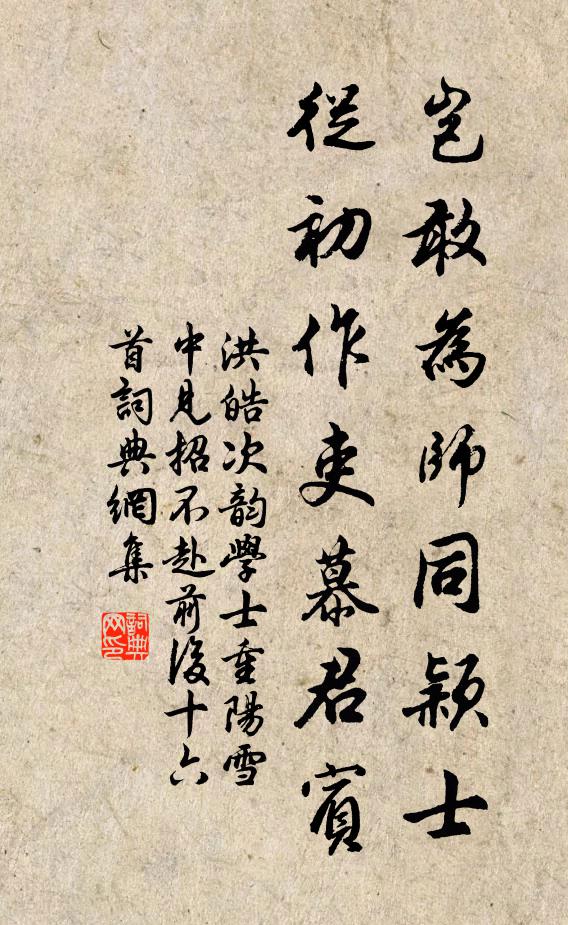 豈敢為師同潁士
從初作吏慕君賓
洪皓次韵學士重陽雪
中見招不赴前後十六
首詞典網集
詞典
网印